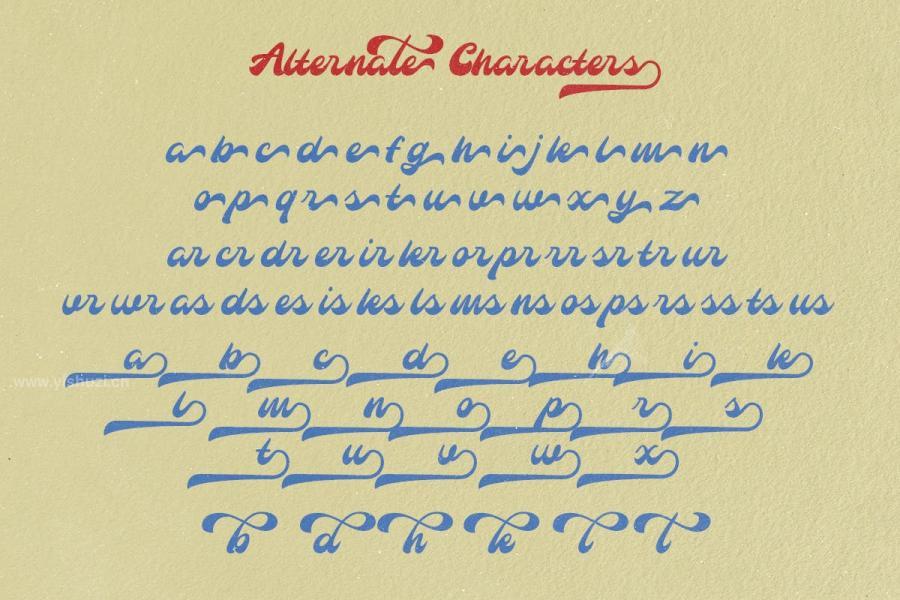 Alternate Characters
a b c d e f g h i j k l m n
o p q r s t u v w x y z
ar cr dr er ir kr or pr rr sr tr ur
vr wr as ds es is ks ls ms ns os ps rs ss ts us
a b c d e h i k
www.yishuzi.cn
l m n o p r s
t u v w x
b d h k l t